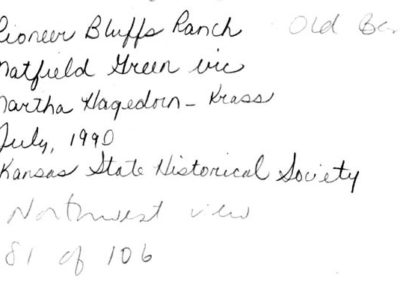 Pioneer Bluffs Ranch Old Ba
Matfield Green vic
Martha Hagedorn-Krass
July, 1990
Kansas State Historical Society
Northwest view
81 of 106